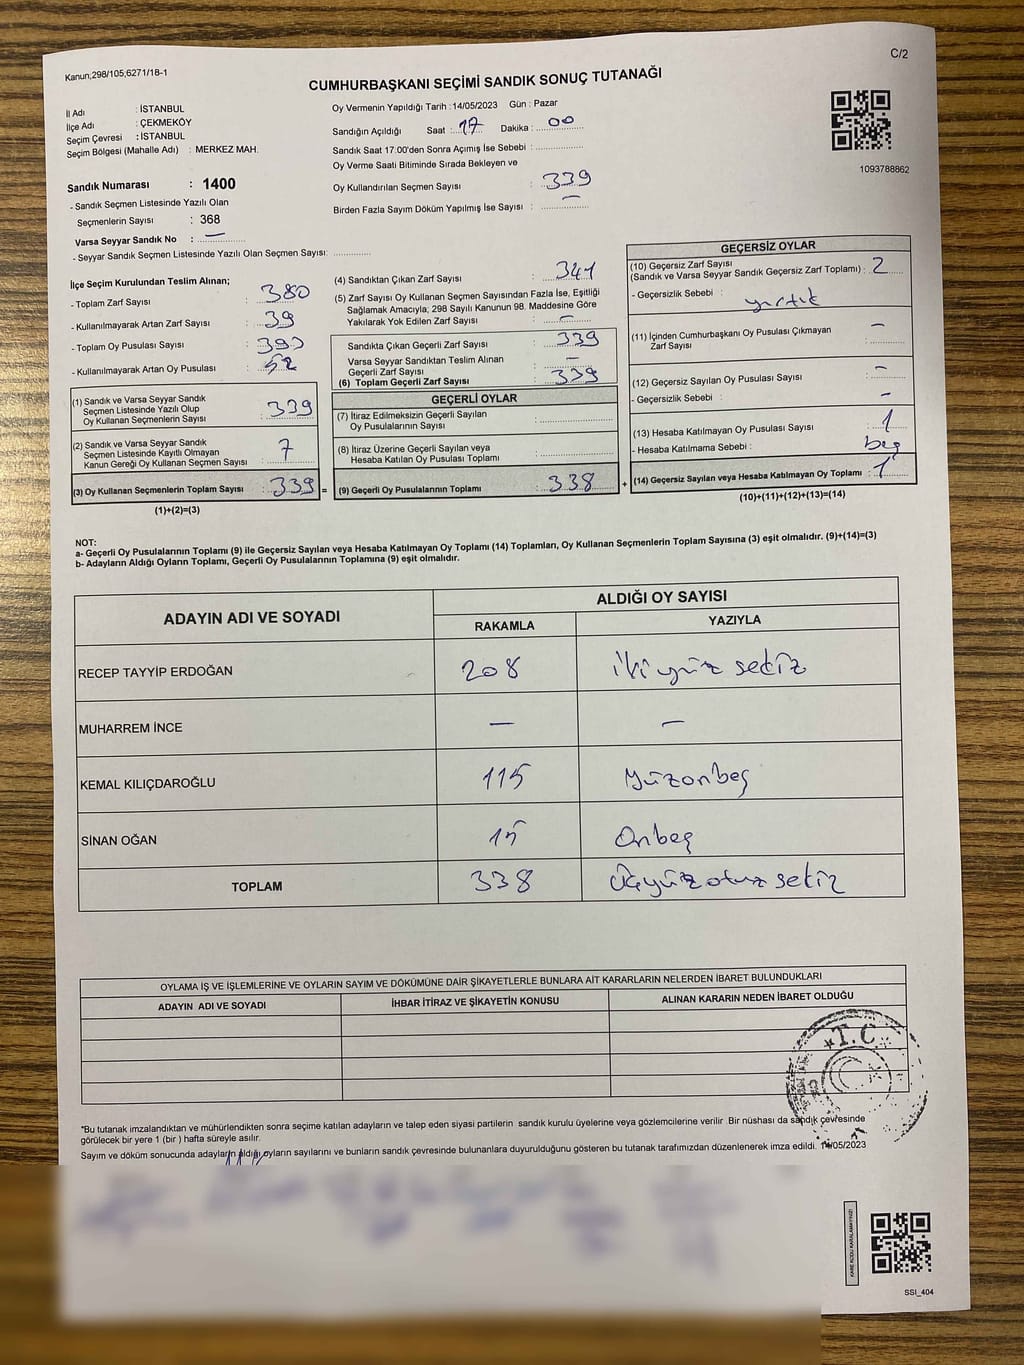 Kanun;298/105;6271/18-1
C/2
CUMHURBAŞKANI SEÇİMİ SANDIK SONUÇ TUTANAĞI
İl Adı : İSTANBUL
İlçe Adı : ÇEKMEKÖY
Seçim Çevresi : İSTANBUL
Seçim Bölgesi (Mahalle Adı) : MERKEZ MAH.
Sandık Numarası : 1400
- Sandık Seçmen Listesinde Yazılı Olan
Seçmenlerin Sayısı : 368
Varsa Seyyar Sandık No : —
- Seyyar Sandık Seçmen Listesinde Yazılı Olan Seçmen Sayısı:
Oy Vermenin Yapıldığı Tarih : 14/05/2023 Gün : Pazar
Sandığın Açıldığı Saat : 17 Dakika : 00
Sandık Saat 17:00'den Sonra Açımış İse Sebebi :
Oy Verme Saati Bitiminde Sırada Bekleyen ve
Oy Kullandırılan Seçmen Sayısı : 339
Birden Fazla Sayım Döküm Yapılmış İse Sayısı : —
1093788862
İlçe Seçim Kurulundan Teslim Alınan;
- Toplam Zarf Sayısı : 380
- Kullanılmayarak Artan Zarf Sayısı : 39
- Toplam Oy Pusulası Sayısı :
- Kullanılmayarak Artan Oy Pusulası : 52
(1) Sandık ve Varsa Seyyar Sandık
Seçmen Listesinde Yazılı Olup
Oy Kullanan Seçmenlerin Sayısı : 339
(2) Sandık ve Varsa Seyyar Sandık
Seçmen Listesinde Kayıtlı Olmayan
Kanun Gereği Oy Kullanan Seçmen Sayısı : 7
(3) Oy Kullanan Seçmenlerin Toplam Sayısı : 339 =
(1)+(2)=(3)
(4) Sandıktan Çıkan Zarf Sayısı : 341
(5) Zarf Sayısı Oy Kullanan Seçmen Sayısından Fazla İse, Eşitliği
Sağlamak Amacıyla; 298 Sayılı Kanunun 98. Maddesine Göre
Yakılarak Yok Edilen Zarf Sayısı : —
Sandıkta Çıkan Geçerli Zarf Sayısı : 339
Varsa Seyyar Sandıktan Teslim Alınan
Geçerli Zarf Sayısı : —
(6) Toplam Geçerli Zarf Sayısı : 339
GEÇERLİ OYLAR
(7) İtiraz Edilmeksizin Geçerli Sayılan
Oy Pusulalarının Sayısı :
(8) İtiraz Üzerine Geçerli Sayılan veya
Hesaba Katılan Oy Pusulası Toplamı :
(9) Geçerli Oy Pusulalarının Toplamı : 338 +
GEÇERSİZ OYLAR
(10) Geçersiz Zarf Sayısı
(Sandık ve Varsa Seyyar Sandık Geçersiz Zarf Toplamı) : 2
- Geçersizlik Sebebi : yırtık
(11) İçinden Cumhurbaşkanı Oy Pusulası Çıkmayan
Zarf Sayısı : —
(12) Geçersiz Sayılan Oy Pusulası Sayısı : —
- Geçersizlik Sebebi : —
(13) Hesaba Katılmayan Oy Pusulası Sayısı : 1
- Hesaba Katılmama Sebebi : boş
(14) Geçersiz Sayılan veya Hesaba Katılmayan Oy Toplamı : 1
(10)+(11)+(12)+(13)=(14)
NOT:
a- Geçerli Oy Pusulalarının Toplamı (9) ile Geçersiz Sayılan veya Hesaba Katılmayan Oy Toplamı (14) Toplamları, Oy Kullanan Seçmenlerin Toplam Sayısına (3) eşit olmalıdır. (9)+(14)=(3)
b- Adayların Aldığı Oyların Toplamı, Geçerli Oy Pusulalarının Toplamına (9) eşit olmalıdır.
ADAYIN ADI VE SOYADI
ALDIĞI OY SAYISI
RAKAMLA YAZIYLA
RECEP TAYYİP ERDOĞAN 208 ikiyüz sekiz
MUHARREM İNCE — —
KEMAL KILIÇDAROĞLU 115 Yüzonbeş
SİNAN OĞAN 15 Onbeş
TOPLAM 338 Üçyüzotuz sekiz
OYLAMA İŞ VE İŞLEMLERİNE VE OYLARIN SAYIM VE DÖKÜMÜNE DAİR ŞİKAYETLERLE BUNLARA AİT KARARLARIN NELERDEN İBARET BULUNDUKLARI
ADAYIN ADI VE SOYADI İHBAR İTİRAZ VE ŞİKAYETİN KONUSU ALINAN KARARIN NEDEN İBARET OLDUĞU
★T.C.
"Bu tutanak imzalandıktan ve mühürlendikten sonra seçime katılan adayların ve talep eden siyasi partilerin sandık kurulu üyelerine veya gözlemcilerine verilir. Bir nüshası da sandık çevresinde
görülecek bir yere 1 (bir ) hafta süreyle asılır.
Sayım ve döküm sonucunda adayların aldığı oyların sayılarını ve bunların sandık çevresinde bulunanlara duyurulduğunu gösteren bu tutanak tarafımızdan düzenlenerek imza edildi. 14/05/2023
KARE KODU KARALAMAYINIZ!
SSI_404